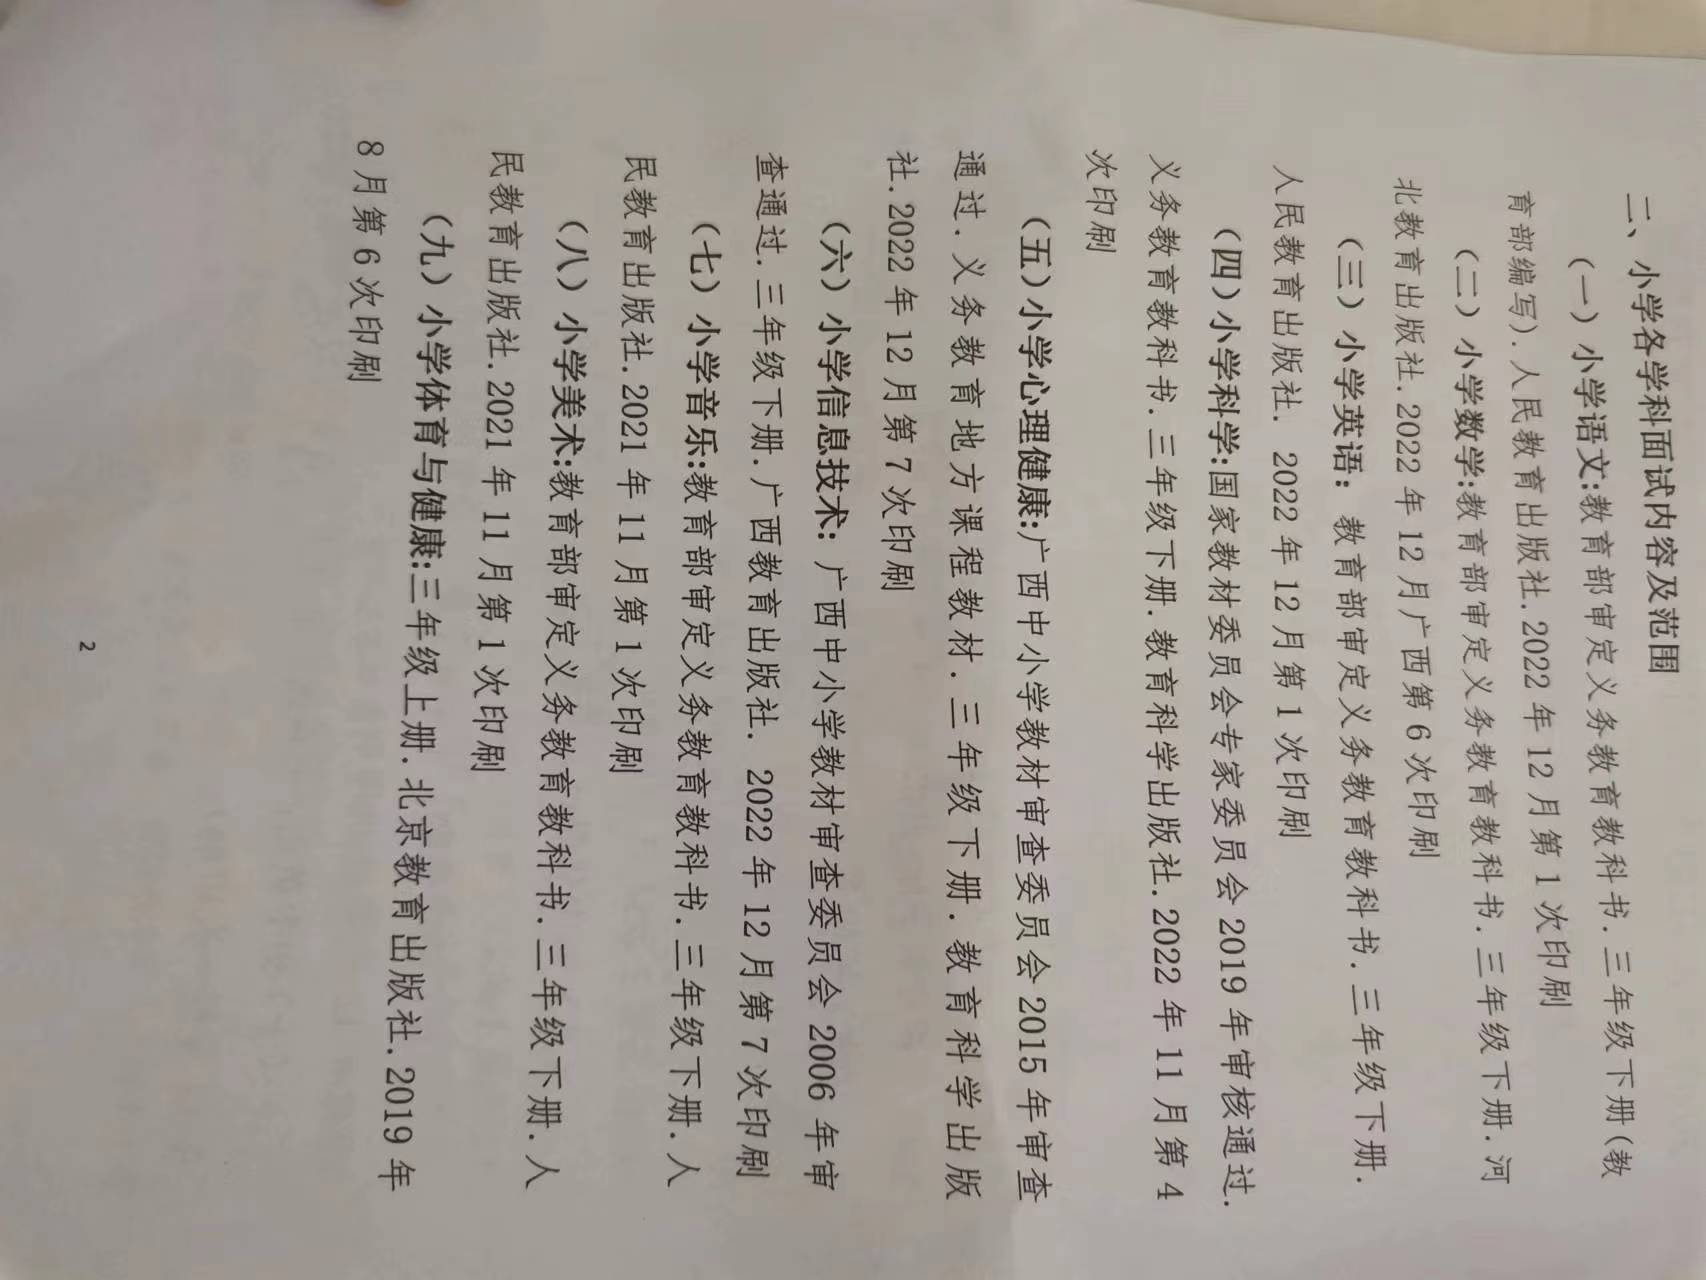 二、小学各学科面试内容及范围
（一）小学语文:教育部审定义务教育教科书.三年级下册(教
育部编写).人民教育出版社.2022年12月第1次印刷
（二）小学数学:教育部审定义务教育教科书.三年级下册.河
北教育出版社.2022年12月广西第6次印刷
（三）小学英语：教育部审定义务教育教科书.三年级下册.
人民教育出版社. 2022年12月第1次印刷
（四）小学科学:国家教材委员会专家委员会2019年审核通过.
义务教育教科书.三年级下册.教育科学出版社.2022年11月第4
次印刷
（五）小学心理健康:广西中小学教材审查委员会2015年审查
通过.义务教育地方课程教材.三年级下册.教育科学出版
社.2022年12月第7次印刷
（六）小学信息技术：广西中小学教材审查委员会2006年审
查通过.三年级下册.广西教育出版社. 2022年12月第7次印刷
（七）小学音乐:教育部审定义务教育教科书.三年级下册.人
民教育出版社.2021年11月第1次印刷
（八）小学美术:教育部审定义务教育教科书.三年级下册.人
民教育出版社.2021年11月第1次印刷
（九）小学体育与健康:三年级上册.北京教育出版社.2019年
8月第6次印刷
2